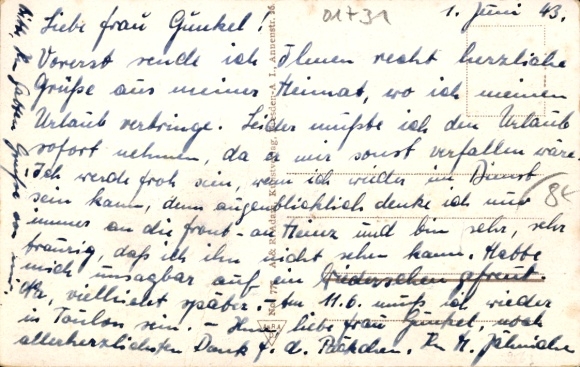 01+31
1. Juni 43.
Liebe Frau Gunkel!
Vorerst sende ich Ihnen recht herzliche
Grüße aus meiner Heimat, wo ich meinen
Urlaub verbringe. Leider mußte ich den Urlaub
sofort nehmen, da er mir sonst verfallen wäre.
Ich werde froh sein, wenn ich wieder im Dienst
sein kann, denn augenblicklich denke ich nur
immer an die Front - an Heinz und bin sehr, sehr
traurig, daß ich ihn nicht sehn kann. Habbe
mich unsagbar auf ein Wiedersehen gfreut.
Na, vielleicht später. - Am 11.6. muß ich wieder
in Toulon sein. - liebe Frau Gunkel, noch
allerherzlichsten Dank f. d. Päckchen. Ihr M.
Bitte, Ihr Gatten Grüße von mir.
8(